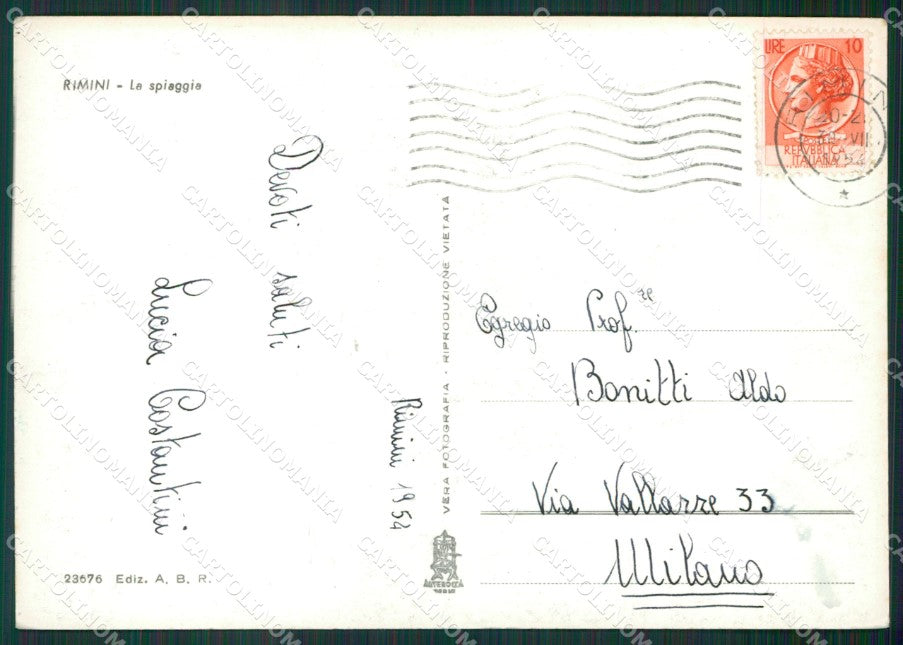 RIMINI - La spiaggia
Devoti saluti
Lucia Costantini
Rimini 1954
23676 Ediz. A. B. R.
VERA FOTOGRAFIA - RIPRODUZIONE VIETATA
LIRE 10
REPVBBLICA
ITALIANA
20-21
VII
1954
Egregio Prof.re
Bonitti Aldo
Via Vallazze 33
Milano
CARTOLINOMANIA